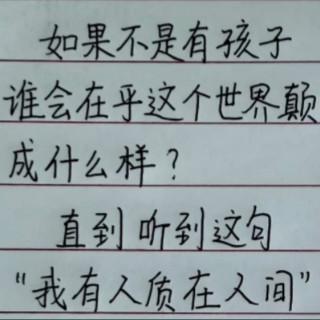 如果不是有孩子
谁会在乎这个世界颠
成什么样？
直到听到这句
“我有人质在人间”